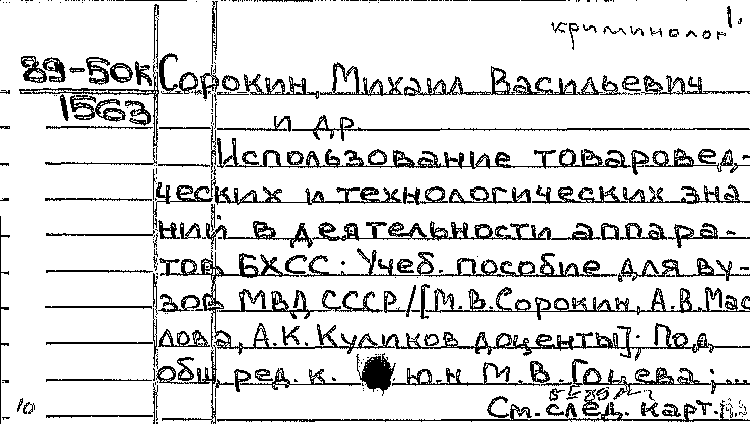 криминолог
89-50к Сорокин, Михаил Васильевич
1563
и др.
Использование товаровед-
ческих и технологических зна
ний в деятельности аппара-
тов БХСС: Учеб. пособие для ву-
зов МВД СССР/[М.В.Сорокин, А.В.Мас
лова, А.К.Куликов доценты]; Под
общ. ред. к. ю.н М.В.Гоцева;...
10
См. след. карт.